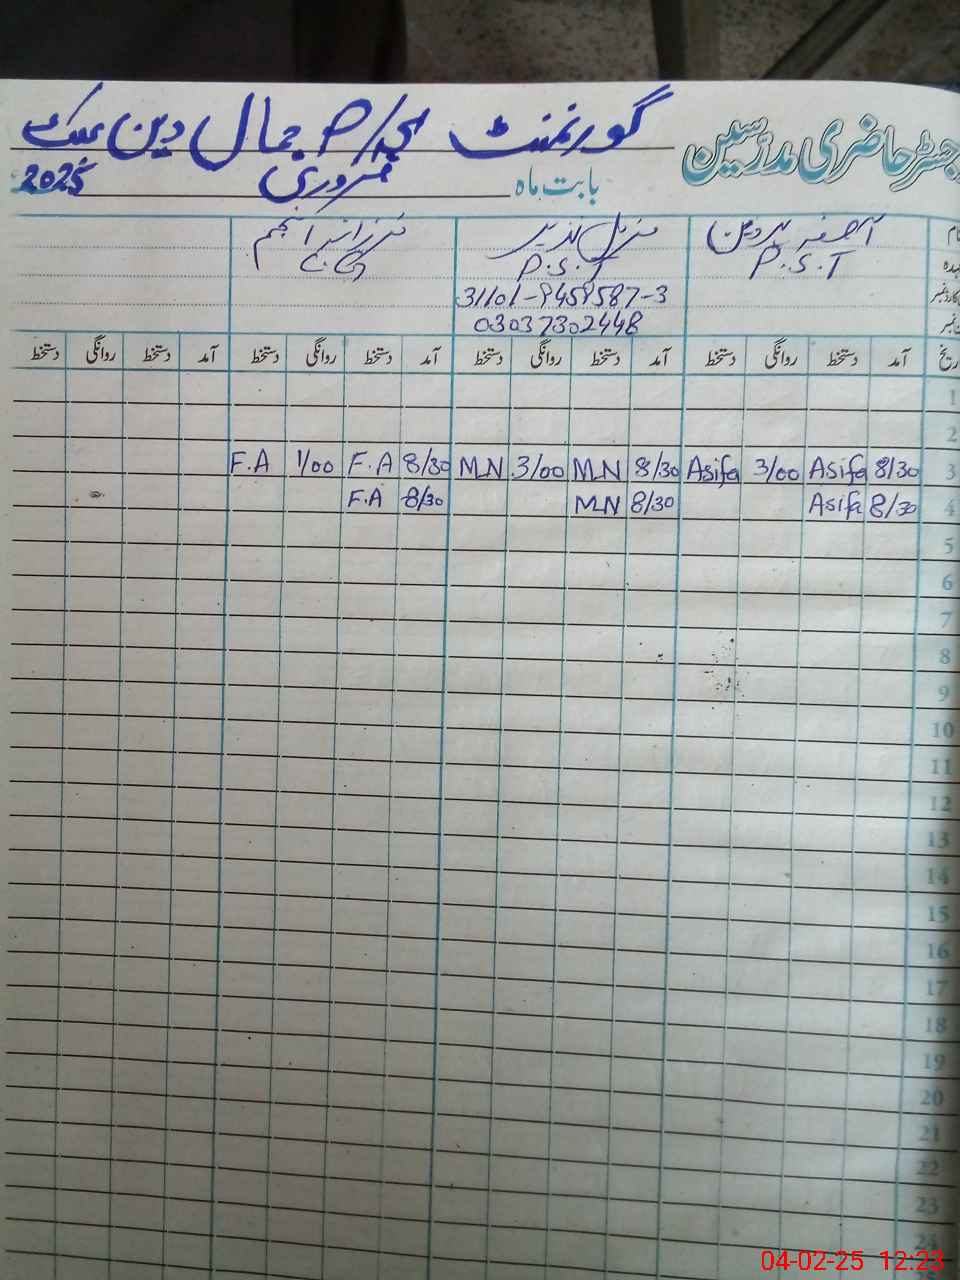 رجسٹر حاضری مدرسین گورنمنٹ جمال دین
بابت ماہ فروری 2025
نام آصفہ پروین مزمل نذیر فرزانہ انجم
عہدہ P.S.T P.S.T
31101-9459587-3
03037302448
تاریخ آمد دستخط روانگی دستخط آمد دستخط روانگی دستخط آمد دستخط روانگی دستخط آمد دستخط روانگی دستخط
1
2
3 8/30 Asifa 3/00 Asifa 8/30 M.N 3/00 M.N 8/30 F.A 1/00 F.A
4 8/30 Asifa 8/30 M.N 8/30 F.A
5
6
7
8
9
10
11
12
13
14
15
16
17
18
19
20
21
22
23
24
04-02-25 12:23